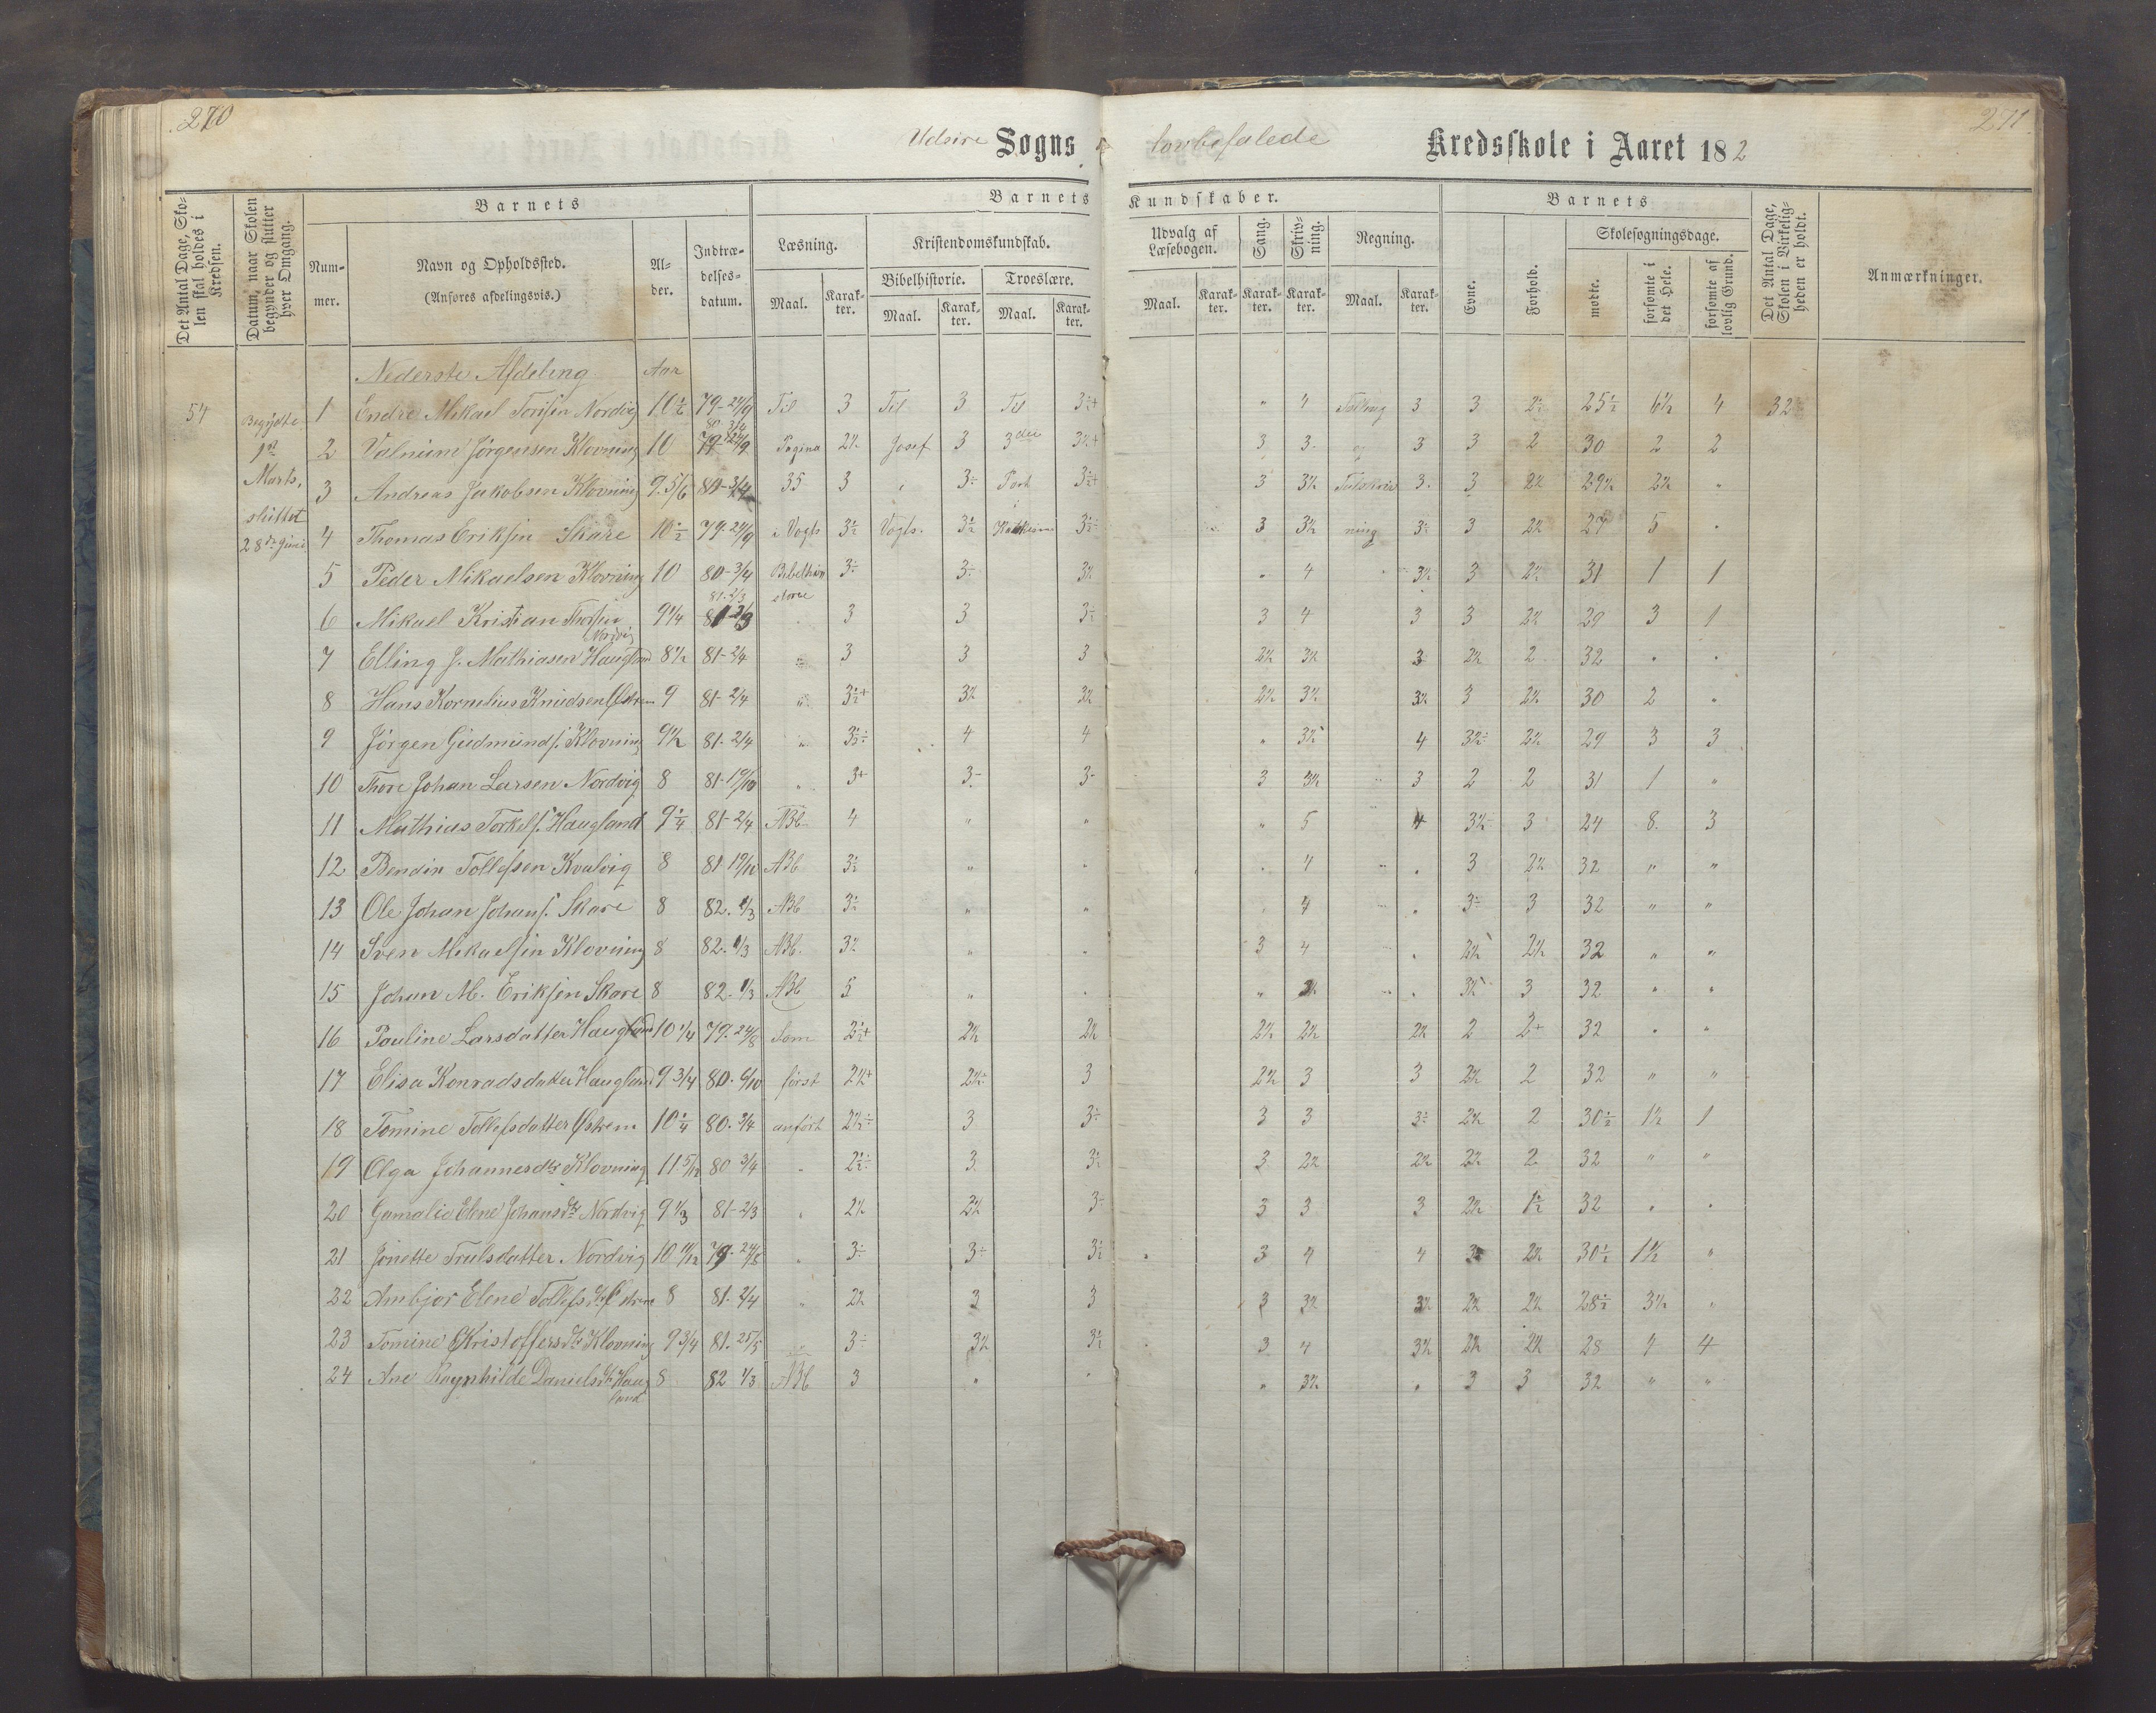 270
271
Udsire Sogns lovbefalede Kredsskole i Aaret 1882
Det Antal Dage, Skolen skal holdes i Kredsen.
Datum, naar Skolen begynder og slutter hver Omgang.
Barnets
Nummer.
Navn og Opholdssted.
(Anføres afdelingsvis.)
Alder.
Indtrædelsesdatum.
Barnets Kundskaber.
Læsning.
Maal.
Karakter.
Kristendomskundskab.
Bibelhistorie.
Maal.
Karakter.
Troeslære.
Maal.
Karakter.
Udvalg af Læsebogen.
Maal.
Karakter.
Sang.
Karakter.
Skrivning.
Karakter.
Regning.
Maal.
Karakter.
Barnets
Evne.
Forhold.
Skolesøgningsdage.
mødte.
forsømte i det Hele.
forsømte af lovlig Grund.
Det Antal Dage, Skolen i Virkeligheden er holdt.
Anmærkninger.
Nederste Afdeling Aar
54 Begyndte 1 Endre Mikael Nordvig 10 1/6 79-24/9 Til 3 Til 3 Til " 4 3 3 2½ 25½ 6½ 4 32
1ste 2 Valnum Jørgensen Klovning 10 Pagina 2½ Josef 3 3die 3½+ 3 3 og 3 3 2 30 2 2
Marts, 3 Andreas Jakobsen Klovning 9 5/6 80-3/4 35 3 3÷ Part 3½+ 3 3½ 3 3 2½ 29½ 2½ "
sluttet 28de Juni 4 Thomas Eriksen Skare 10½ 79-24/9 i Vogts 3½ Vogts 3½ 3½÷ 3 3½ ning 3÷ 3 2½ 27 5 "
5 Peder Mikaelsen Klovning 10 80-3/4 Bibelhistorie 3÷ 3÷ 3½ " 4 3½ 3 2½ 31 1 1
6 Mikael Kristian Thorsen Nordvig 9 1/4 81-2/3 " 3 3 3÷ 3 4 3 3 2½ 29 3 1
7 Elling J. Mathiasen Haugland 8½ 81-2/4 " 3 3 3 2½ 3½ 3 2½ 2 32 " "
8 Hans Kornelius Knudsen Østrem 9 81-2/4 " 3½+ 3½ 3½ 2½ 3½ 3½ 3 2½ 30 2 "
9 Jørgen Gudmunds. Klovning 9½ 81-2/4 " 3½÷ 4 4 " 3½ 4 3½÷ 2½ 29 3 3
10 Thore Johan Larsen Nordvig 8 81-19/10 " 3+ 3÷ 3÷ 3 3½ 3 2 2 31 1 "
11 Mathias Torkels. Haugland 9 1/4 81-2/4 ABb 4 " " " 5 4 3½ 3 24 8 3
12 Bendix Tollefsen Kvalvig 8 81-19/10 ABb 3½ " " " 4 " 3 2½ 32 " "
13 Ole Johan Johans. Skare 8 82-1/3 ABb 3½ " " " 4 " 3÷ 3 32 " "
14 Sven Mikaelsen Klovning 8 82-1/3 ABb 3½ " " 3 4 " 3½ 2½ 32 " "
15 Johan M. Eriksen Skare 8 82-1/3 ABb 5 " " " " 3½ 3 32 " "
16 Pauline Larsdatter Haugland 10 1/4 79-24/8 Som 2½+ 2½ 2½ 2½ 2½ 2½ 2 2+ 32 " "
17 Elisa Konradsdatter Haugland 9 3/4 80-6/10 først 2½+ 2½÷ 3 2½ 3 3 2½ 2 32 " "
18 Tomine Tollefsdatter Østrem 10 1/4 80-3/4 anført 2½÷ 3 3÷ 3 3 3÷ 2½ 2 30½ 1½ 1
19 Olga Johannesdtr Klovning 11 5/12 80-3/4 " 2½÷ 3 3½ 3 2½ 2½ 2½ 2 32 " "
20 Gamalie Elene Johansdtr Nordvig 9 1/3 81-2/3 " 2½ 2½ 3÷ 3 3 3 2½ 1½ 32 " "
21 Jonette Trulsdatter Nordvig 10 11/12 79-24/8 " 3÷ 3÷ 3½ 3 4 4 3 2½ 30½ 1½ "
22 Ambjør Elene Tollefsdtr Østrem 8 81-2/4 " 2½ 3 3 3 3½ 3½ 2½ 2½ 28½ 3½ "
23 Tomine Kristoffersdtr Klovning 9 3/4 81-25/5 " 3÷ 3½ 3½ 3 4 3½ 2½ 2½ 28 4 4
24 Ane Ragnhilde Danielsdtr Haugland 8 82 1/3 ABb 3 " " " 3½ " 3 3 32 " "